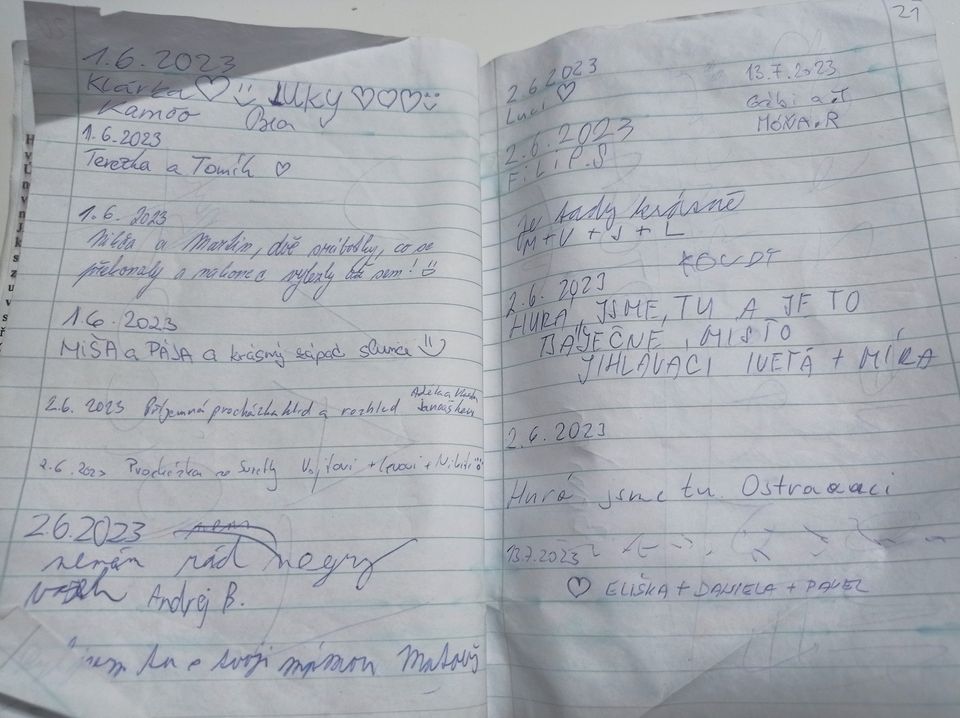 1.6.2023
Klárka ♡ :) Luky ♡♡♡
Kamčo Bea
1.6.2023
Terezka a Tomík ♡
1.6. 2023
a Martin, dvě srábotky, co se
překonaly a nakonec vylezly až sem! :)
1.6.2023
MÍŠA a PÁJA a krásný západ slunce :)
2.6. 2023 Příjemná procházka klid a rozhled Adélka
2.6.2023 Procházka se Vojtovi + + 
2.6.2023
nemám rád negry
Andrej B.
jsem tu s svojí mámou Matouš
21
2.6.2023
Luci ♡
13.7.2023
Gábi a.T
MÓŇA.R
2.6.2023
FiLiP.S
Je tady krásně
M+V+J+L
2.6.2023
HURÁ, JSME, TU A JE TO
BÁJEČNÉ, MÍSTO
JIHLAVACI IVETA + MÍRA
2.6.2023
Hurá jsme tu. Ostravaci
13.7.2023
♡ ELIŠKA + DANIELA + PAVEL